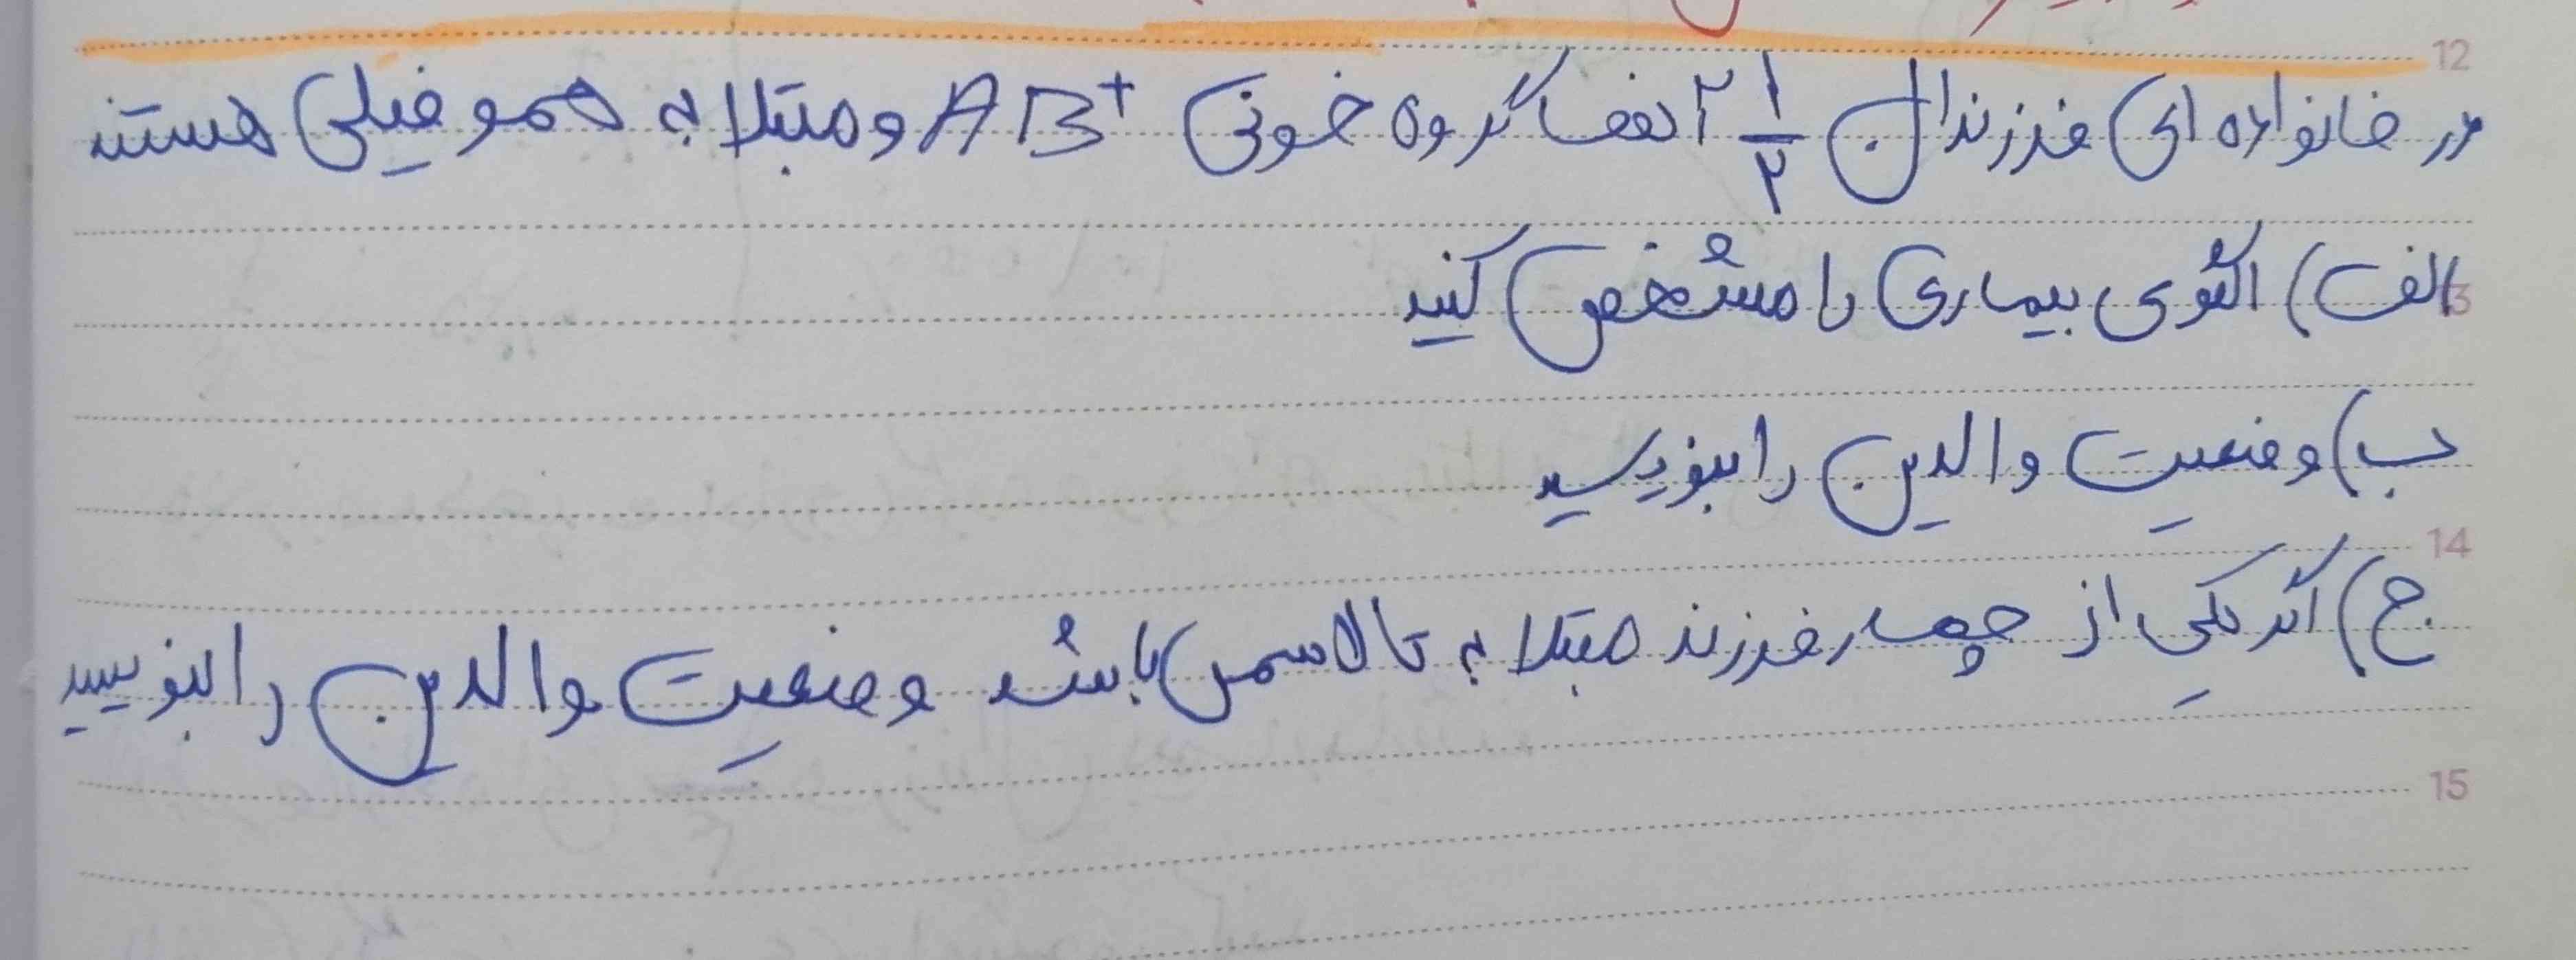 12
در خانواده ای فرزندان ۱/۲ آنها گروه خونی AB+ و مبتلا به هموفیلی هستند
الف) الگوی بیماری را مشخص کنید
13
ب) وضعیت والدین را بنویسید
14
ج) اگر یکی از چهار فرزند مبتلا به تالاسمی باشد وضعیت والدین را بنویسید
15